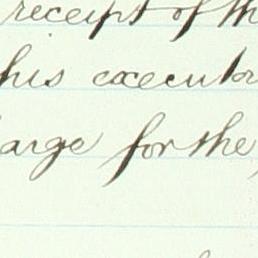 receipt of th
his executor
arge for the